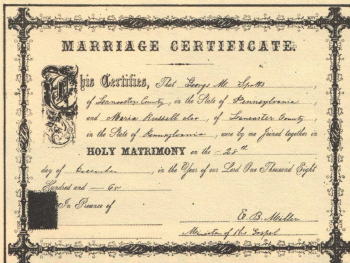 MARRIAGE CERTIFICATE.
This Certifies, That George M. Spotts,
of Lancaster County, in the State of Pennsylvania
and Maria Russell also of Lancaster County
in the State of Pennsylvania, were by me joined together in
HOLY MATRIMONY on the 28th
day of December in the Year of our Lord One Thousand Eight
Hundred and
In Presence of
E. B. Miller
Minister of the Gospel